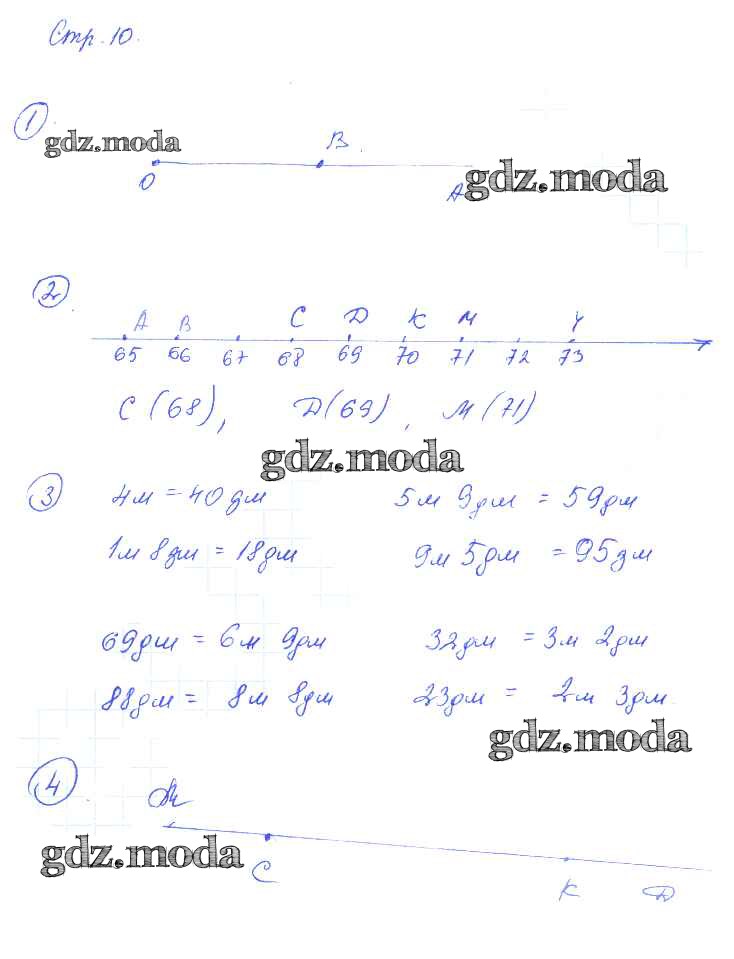 Стр. 10.
1
gdz.moda
B
O
A
gdz.moda
2
A B C D K M Y
65 66 67 68 69 70 71 72 73
C (68), D (69), M (71)
gdz.moda
3
4м = 40дм 5м 9дм = 59дм
1м 8дм = 18дм 9м 5дм = 95дм
69дм = 6м 9дм 32дм = 3м 2дм
88дм = 8м 8дм 23дм = 2м 3дм.
gdz.moda
4
gdz.moda
C
K D